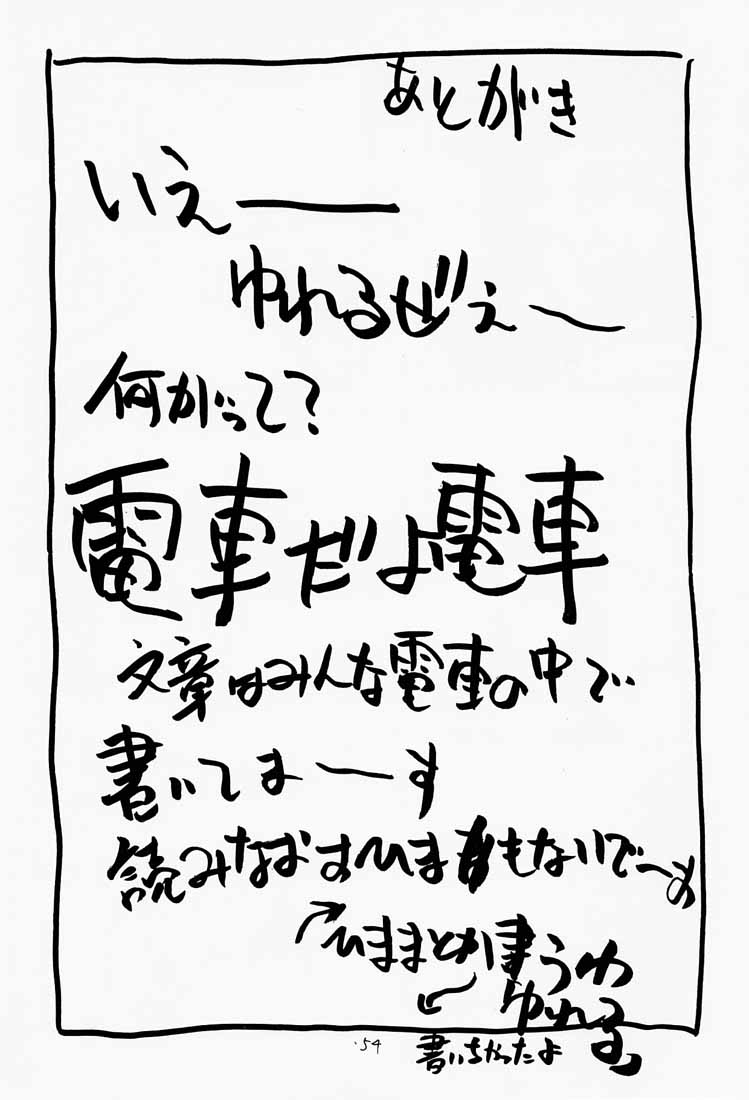 あとがき
いえ――
ゆれるぜぇ～
何がって？
電車だよ電車
文章はみんな電車の中で
書いてま～す
読みなおすひまもないで～す
ひままとか書うわ
ゆれる
書いちゃったよ
54